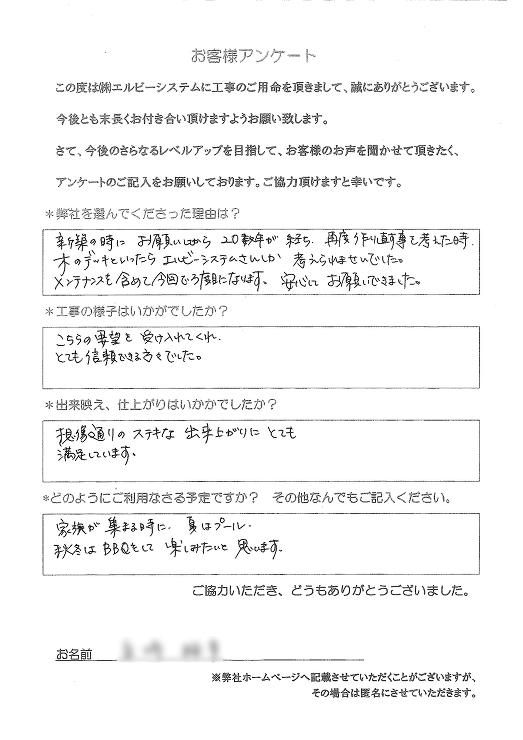 お客様アンケート
この度は㈱エルビーシステムに工事のご用命を頂きまして、誠にありがとうございます。
今後とも末長くお付き合い頂けますようお願い致します。
さて、今後のさらなるレベルアップを目指して、お客様のお声を聞かせて頂きたく、
アンケートのご記入をお願いしております。ご協力頂けますと幸いです。
＊弊社を選んでくださった理由は？
新築の時に お願いしてから 20数年が経ち、再度作り直す事を考えた時
木のデッキといったら エルビーシステムさんしか 考えられませんでした。
メンテナンスも含めて今回で3度目になります。安心して お願いできました。
＊工事の様子はいかがでしたか？
こちらの要望を 受け入れてくれ、
とても信頼できる方々でした。
＊出来映え、仕上がりはいかかでしたか？
想像通りの ステキな 出来上がりに とても
満足しています。
＊どのようにご利用なさる予定ですか？ その他なんでもご記入ください。
家族が 集まる時に、夏はプール、
秋冬は BBQをして 楽しみたいと 思います。
ご協力いただき、どうもありがとうございました。
お名前
※弊社ホームページへ記載させていただくことがございますが、
その場合は匿名にさせていただきます。